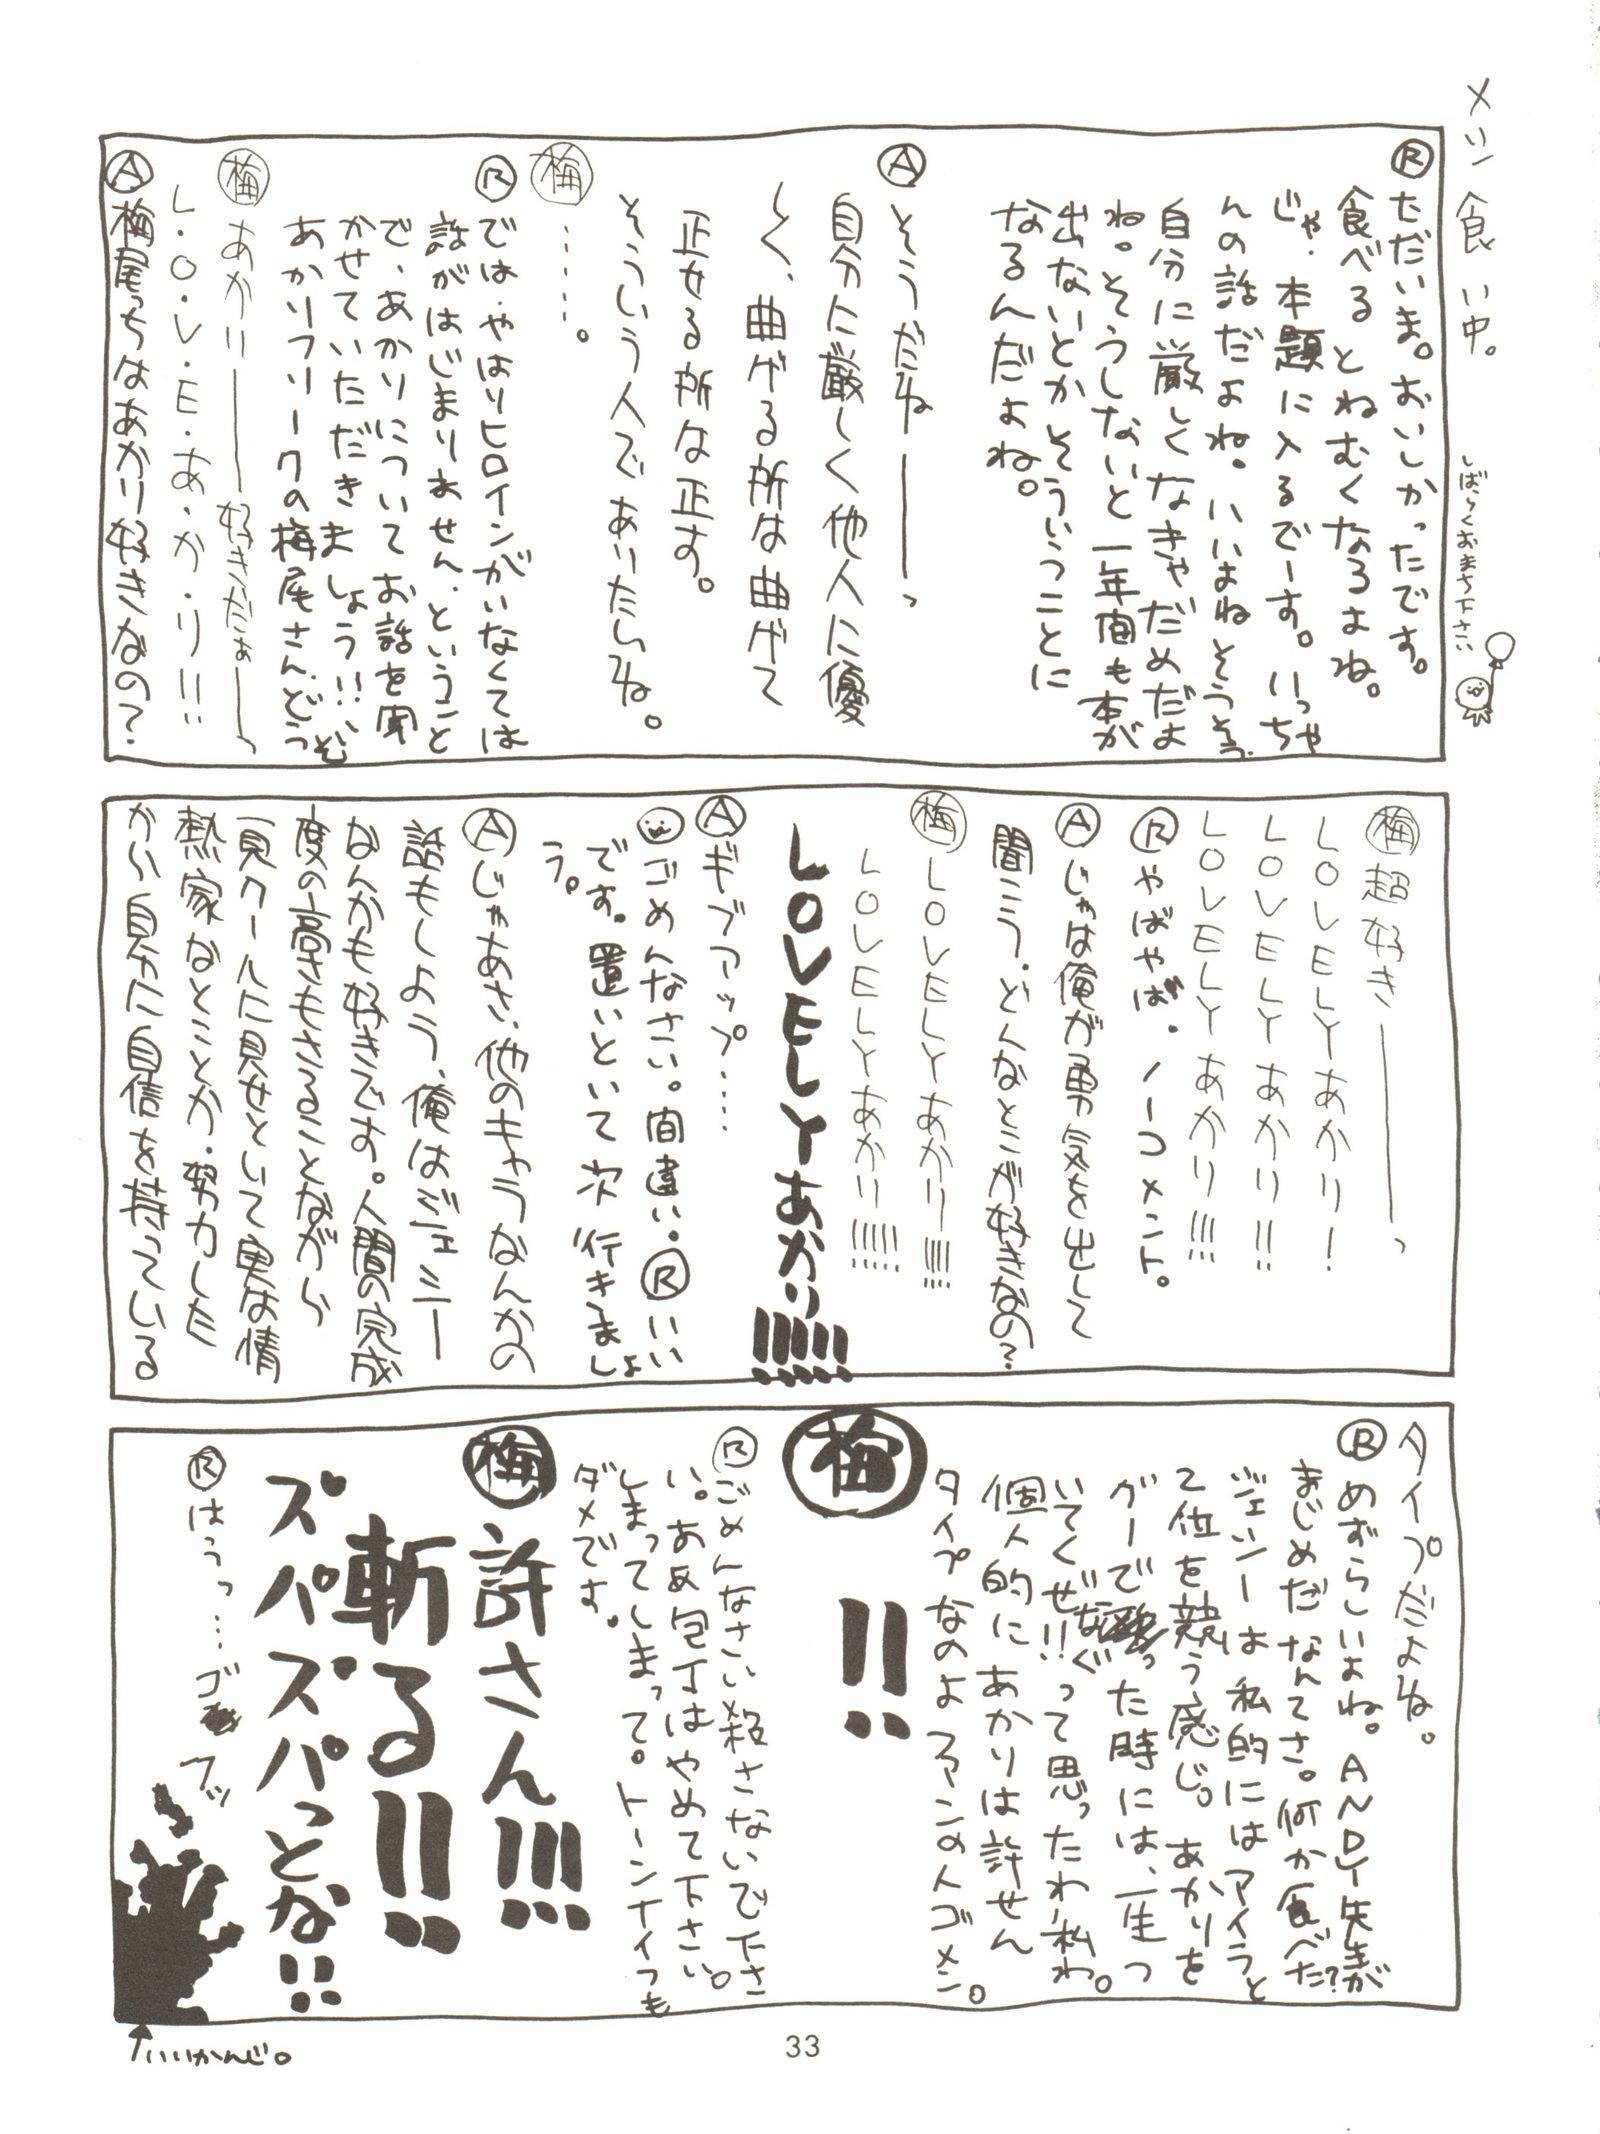 メシ食い中。
しばらくおまち下さい
Ⓡただいま。おいしかったです。
食べるとねむくなるよね。
じゃ、本題に入るでーす。いっちゃ
んの話だよね。いいよねそうそう、
自分に厳しくなきゃだめだよ
ね。そうしないと一年間も本が
出ないとかそういうことに
なるんだよね。
Ⓐそうだねーーーっ
自分に厳しく他人に優
しく、曲げる所は曲げて
正せる所な正す。
そういう人でありたいね。
㊞梅……。
Ⓡでは、やはりヒロインがいなくては
話がはじまりません、ということ
で、あかりについてお話を聞
かせていただきましょう!!、
あかりフリークの梅尾さん、どうぞ
梅 あかりーーー好きだぁーーっ
L・O・V・E・あ・か・り!!
Ⓐ梅尾っちはあかり好きなの?
梅 超好きーーーっ
LOVELYあかり!
LOVELYあかり!!
LOVELYあかり!!!
Ⓡやばやば、ノーコメント。
Ⓐじゃは俺が勇気を出して
聞こう、どんなとこが好きなの?
梅 LOVELYあかり!!!!
LOVELYあかり!!!!!
LOVELYあかり!!!!!
Ⓐギブアップ……
ごめんなさい。間違い。Ⓡいい
です。置いといて次行きましょ
う。
Ⓐじゃあさ、他のキャラなんかの
話もしよう、俺はジェシー
なんかも好きです。人間の完成
度の高さもさることながら
一見クールに見せといて実は情
熱家なとことか、努力した
かい自分に自信を持っている
タイプだよね。
Ⓡめずらしいよね。ANDY先生が
まじめだなんてさ。何か食べた?
ジェシーは私的にはアイラと
て位を競う感じ。あかりを
グーでなぐった時には、一生つ
いてくぜ!!って思ったわ私わ。
個人的にあかりは許せん
タイプなのよファンの人ゴメン。
梅 !!
Ⓡごめんなさい殺さないで下さ
い。おぬ包丁はやめて下さい。
しまってしまって。トーンナイフも
ダメです。
梅 許さん!!!
斬る!!
ズパズパっとな!!
Ⓡはうっ…ゴフッ
↑いいかんじ。
33